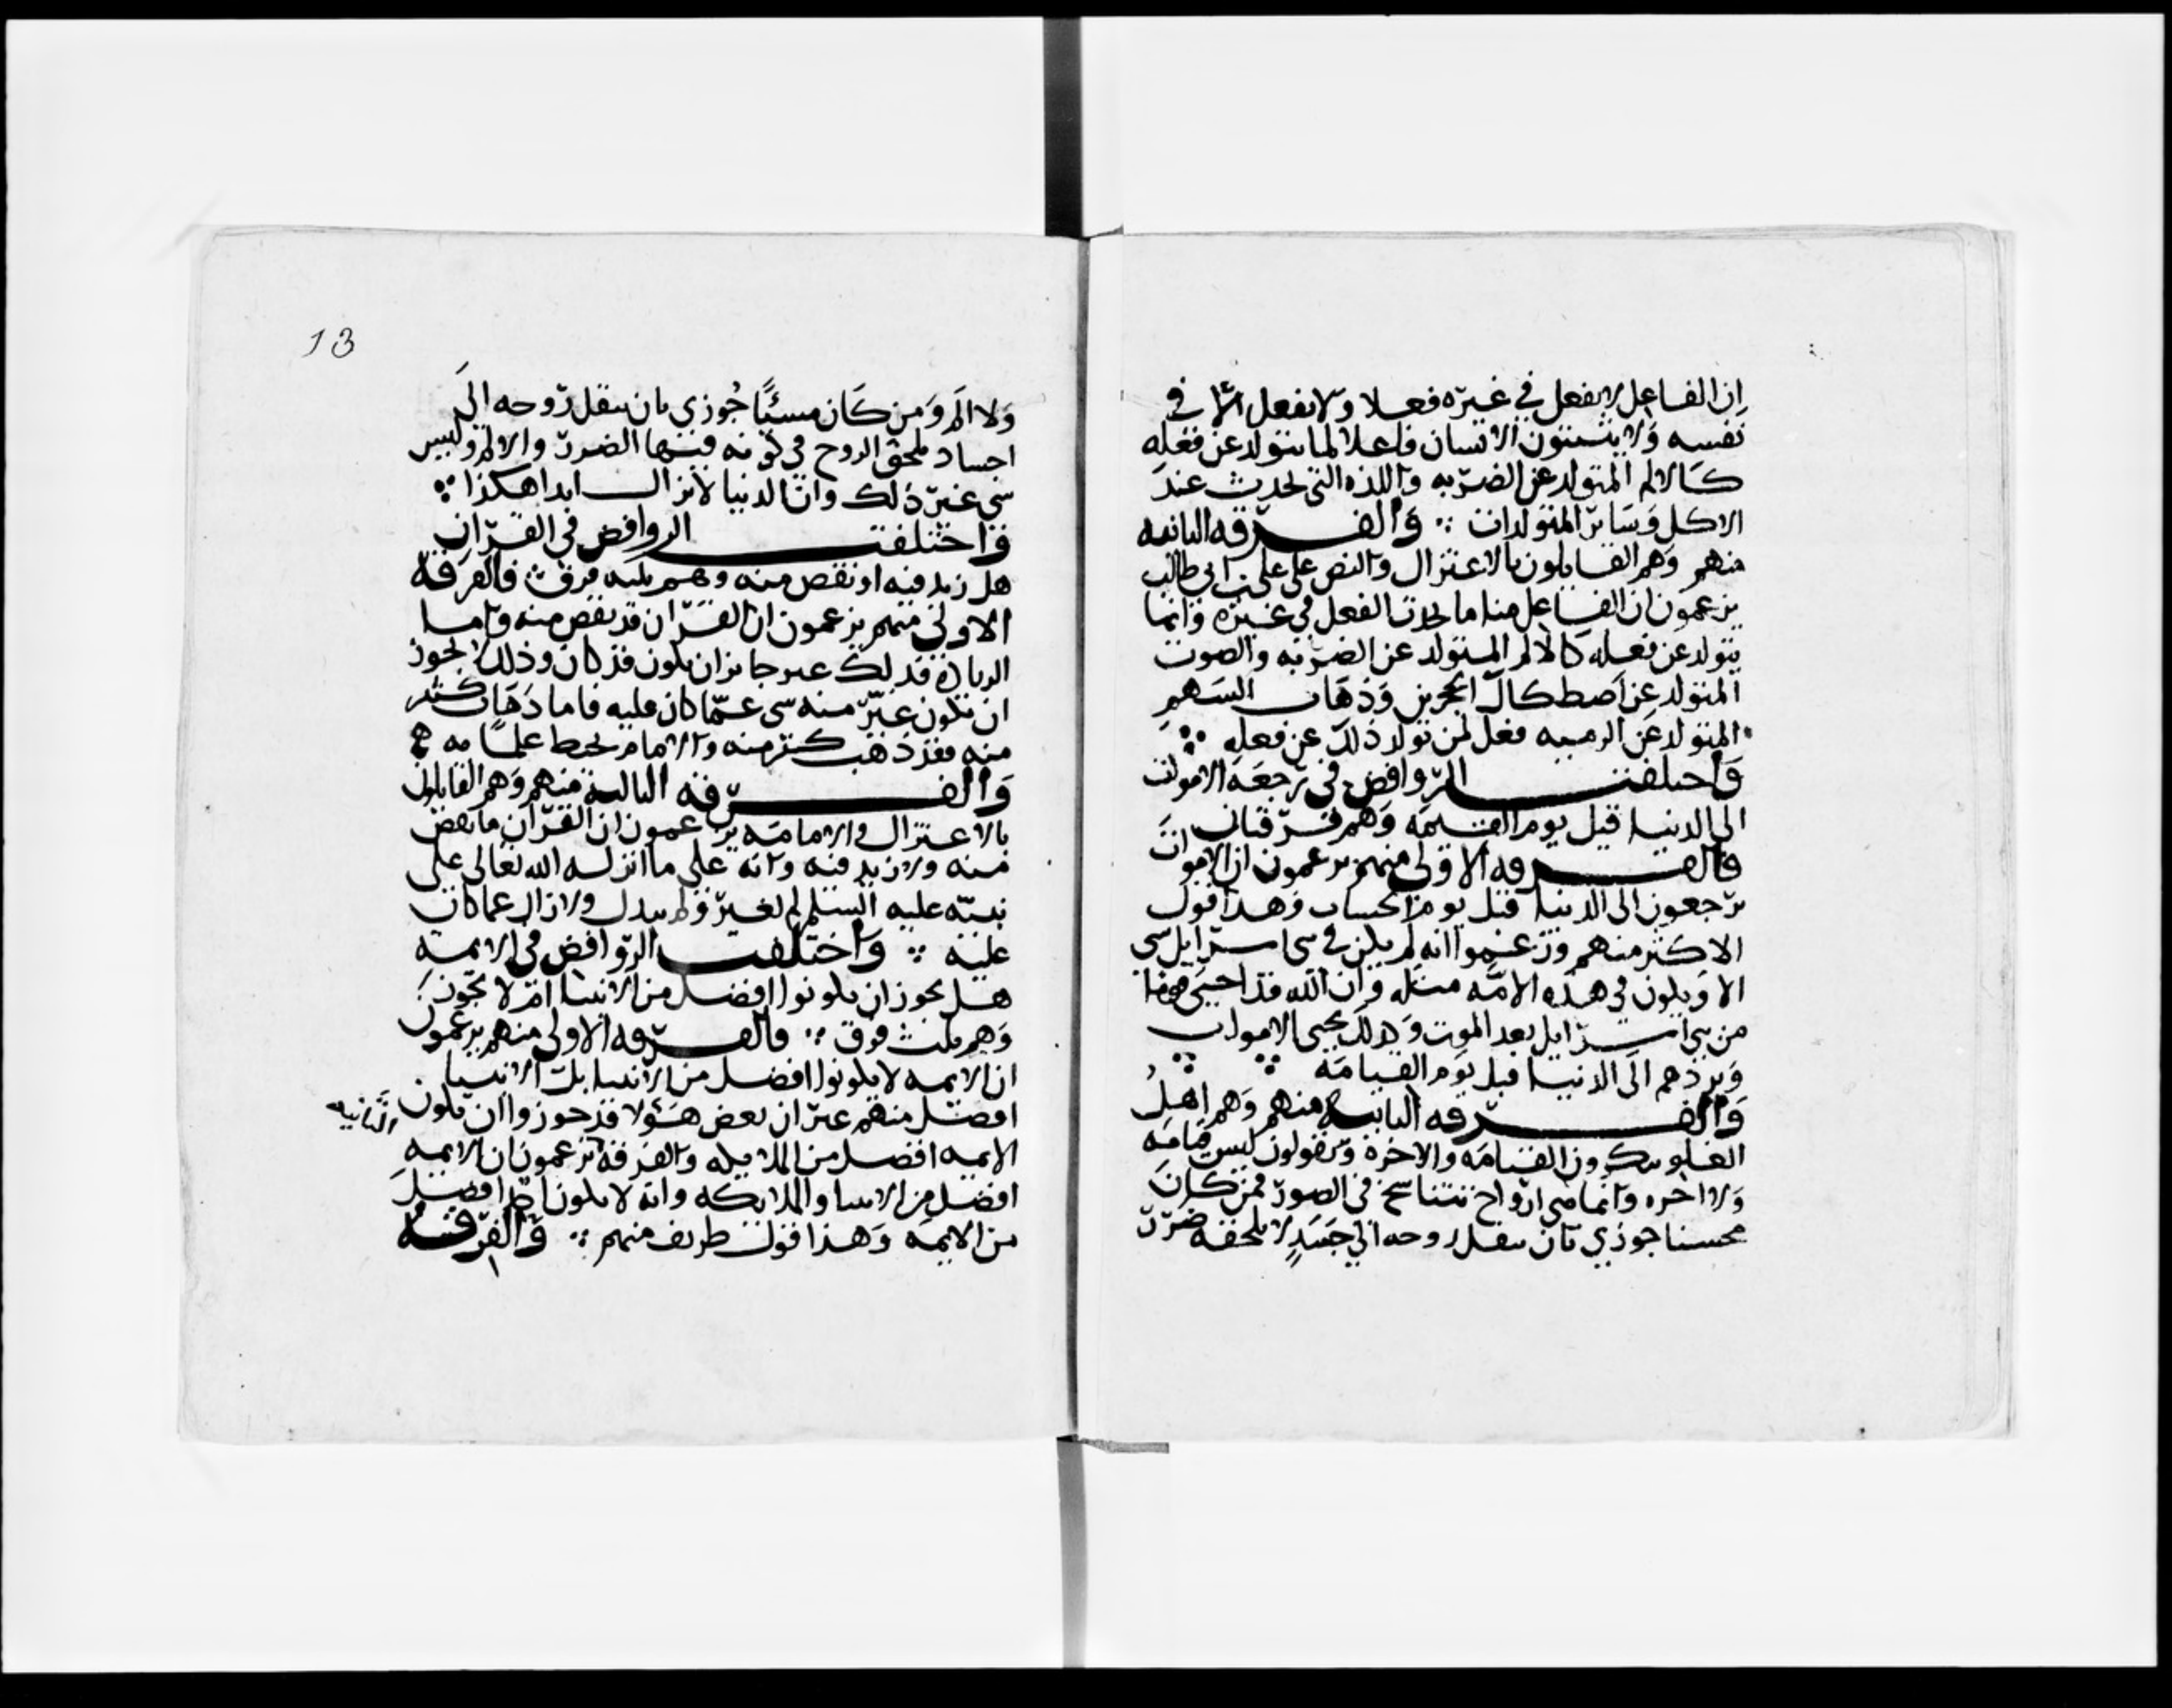 ان الفاعل لا يفعل في غيره فعلا ولا يفعل الا في
نفسه ولا يثبتون الانسان فاعلا لما يتولد عن فعله
كالالم المتولد عن الضربه واللذه التي تحدث عند
الاكل وسائر المتولدات ∴ والفرقه الثانيه
منهم وهم القايلون بالاعتزال والنص على علي بن ابي طالب
يزعمون ان الفاعل منا ما يحدث الفعل في غيره وانما
يتولد عن فعله كالالم المتولد عن الضربه والصوت
المتولد عن اصطكاك الحجرين وذهاب السهم
المتولد عن الرميه فعل لمن تولد ذلك عن فعله ∴
واختلفت الروافض في رجعة الاموات
الى الدنيا قبل يوم القيمه وهم فرقتان
فالفرقه الاولى منهم يزعمون ان الاموات
يرجعون الى الدنيا قبل يوم الحساب وهذا قول
الاكثر منهم وزعموا انه لم يكن في بني اسرايل شي
الا ويكون في هذه الامه مثله وان الله قد احيى قوما
من بني اسرايل بعد الموت وكذلك يحيي الاموات
ويردهم الى الدنيا قبل يوم القيامه ∴ ∴
والفرقه الثانيه منهم وهم اهل
الغلو ينكرون القيامه والاخرة ويقولون ليس قيامه
ولا اخره وانما هي ارواح تتناسخ في الصور فمن كان
محسنا جوزي بان ينقل روحه الى جسد لا يلحقه ضرر
13
ولا الم ومن كان مسيئا جوزي بان ينقل روحه الى
اجساد يلحق الروح في كونه فيها الضرر والالم وليس
شي غير ذلك وان الدنيا لا تزال ابدا هكذا ∴
واختلفت الروافض في القران
هل زيد فيه او نقص منه وهم ثلثه فرق فالفرقة
الاولى منهم يزعمون ان القران قد نقص منه واما
الزيادة فذلك غير جايز ان يكون قد كان وكذلك لا يجوز
ان يكون غير منه شي عما كان عليه فاما ذهاب كثير
منه فقد ذهب كثير منه والامام يحيط علما به
والفرقه الثالثة منهم وهم القايلون
بالاعتزال والامامه يزعمون ان القران ما نقص
منه ولا زيد فيه وانه على ما انزله الله تعالى على
نبيه عليه السلم لم يغير ولم يبدل ولا زال عما كان
عليه ∴ واختلفت الروافض في الايمه
هل يجوز ان يكونوا افضل من الانبيا ام لا يجوز
وهم ثلث فرق ∴ فالفرقه الاولى منهم يزعمون
ان الايمه لا يكونوا افضل من الانبيا بل الانبيا
افضل منهم غير ان بعض هؤلا قد جوزوا ان يكون
الايمه افضل من الملايكه والفرقه يزعمون ان الايمه
الثانيه
افضل من الانبيا والملايكه وانه لا يكون احد افضل
من الايمه وهذا قول طوايف منهم ∴ والفرقه